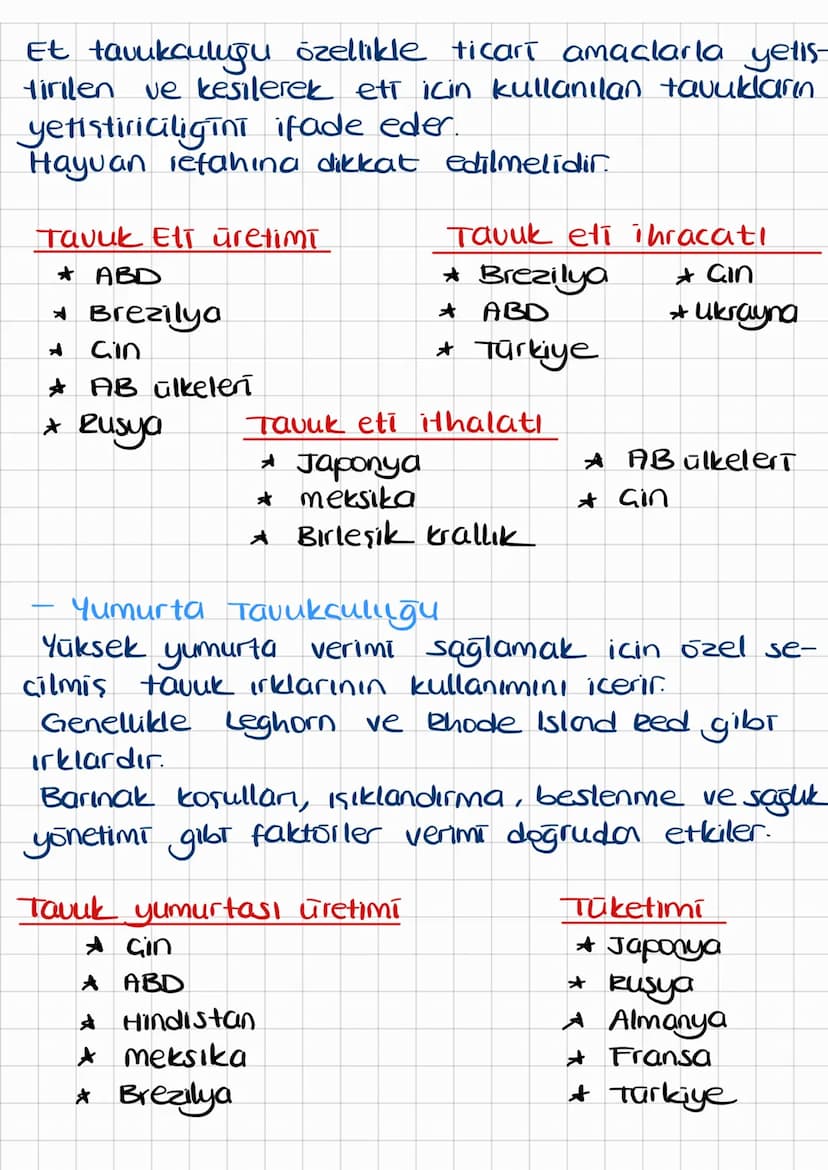 Et tavukculuğu özellikle ticari amaclarla yetis-
tirilen ve kesilerek eti icin kullanılan tavukların
yetistiriciligini ifade eder.
Hayvan refahına dikkat edilmelidir.
Tavuk Eti üretimi
* ABD
* Brezilya
* Çin
* AB ülkeleri
* Rusya
Tavuk eti ihracatı
* Brezilya
* ABD
* Türkiye
* Çin
* Ukrayna
Tavuk eti ithalatı
* Japonya
* meksika
* Birleşik krallık
* AB ülkeleri
* Çin
- Yumurta Tavukçuluğu
Yüksek yumurta verimi sağlamak icin özel se-
çilmiş tavuk ırklarının kullanımını icerir.
Genellikle Leghorn ve Rhode Island Red gibi
ırklardır.
Barınak koşulları, ışıklandırma, beslenme ve sağlık
yönetimi gibi faktörler verimi doğrudan etkiler.
Tavuk yumurtası üretimi
* Çin
* ABD
* Hindistan
* meksika
* Brezilya
Tüketimi
* Japonya
* Rusya
* Almanya
* Fransa
* Türkiye